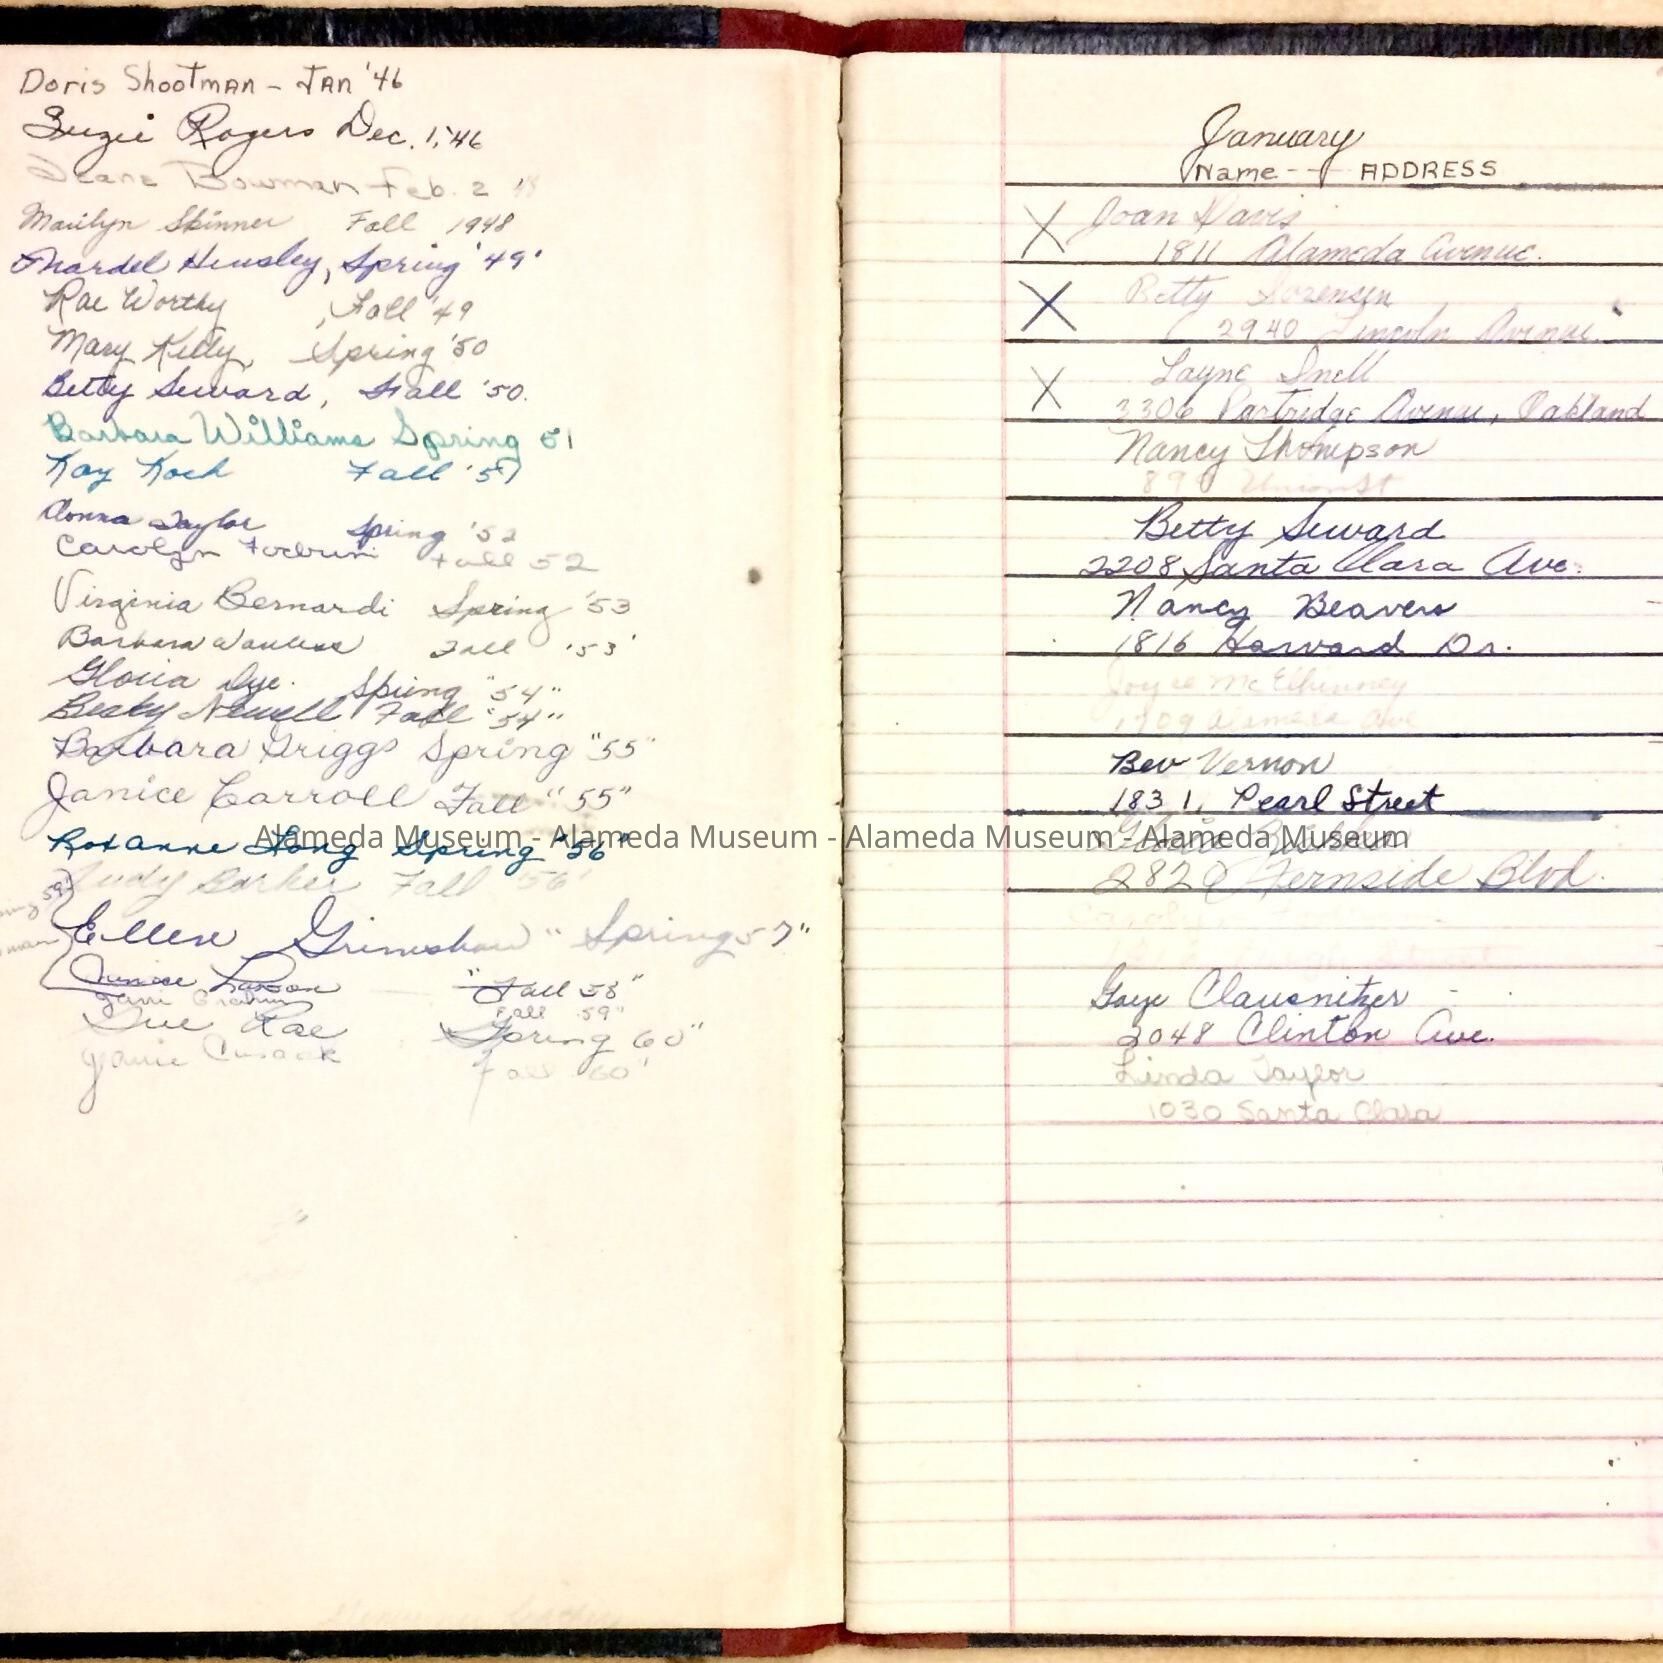 Doris Shootman - JAN '46
Suzie Rogers Dec. 1, '46
Bowman Feb. 2
Marilyn Skinner Fall 1948
Mardel Hensley, Spring '49'
Rae Worthy , Fall '49
Mary Kelly, Spring '50
Betty Seward, Fall '50.
Barbara Williams Spring 51
Kay Koch Fall '51
Donna Taylor Spring '52
Carolyn Fall 52
Virginia Bernardi Spring '53
Barbara Fall '53'
Gloria Dye. Spring "54"
Becky Newell Fall "54"
Barbara Griggs Spring "55"
Janice Carroll Fall "55"
Roxanne Long Spring "56"
Judy Barker Fall '56'
59'
Ellen Grimshaw " Spring 57"
Larson "Fall 58"
Fall 59"
Sue Rae Spring 60"
Janie Cusack Fall "60"
January
Name -- ADDRESS
X Joan Davis
1811 Alameda Avenue.
X Betty Sorensen
2940 Lincoln Avenue.
X Layne Snell
3306 Partridge Avenue, Oakland
Nancy Thompson
Union St
Betty Seward
2208 Santa Clara Ave.
Nancy Beavers
1816 Harvard Dr.
Joyce McElhinney
1709 Alameda Ave
Bev Vernon
1831, Pearl Street
2820 Fernside Blvd.
Gaye Clausnitzer
2048 Clinton Ave.
Linda Taylor
1030 Santa Clara
Alameda Museum - Alameda Museum - Alameda Museum - Alameda Museum